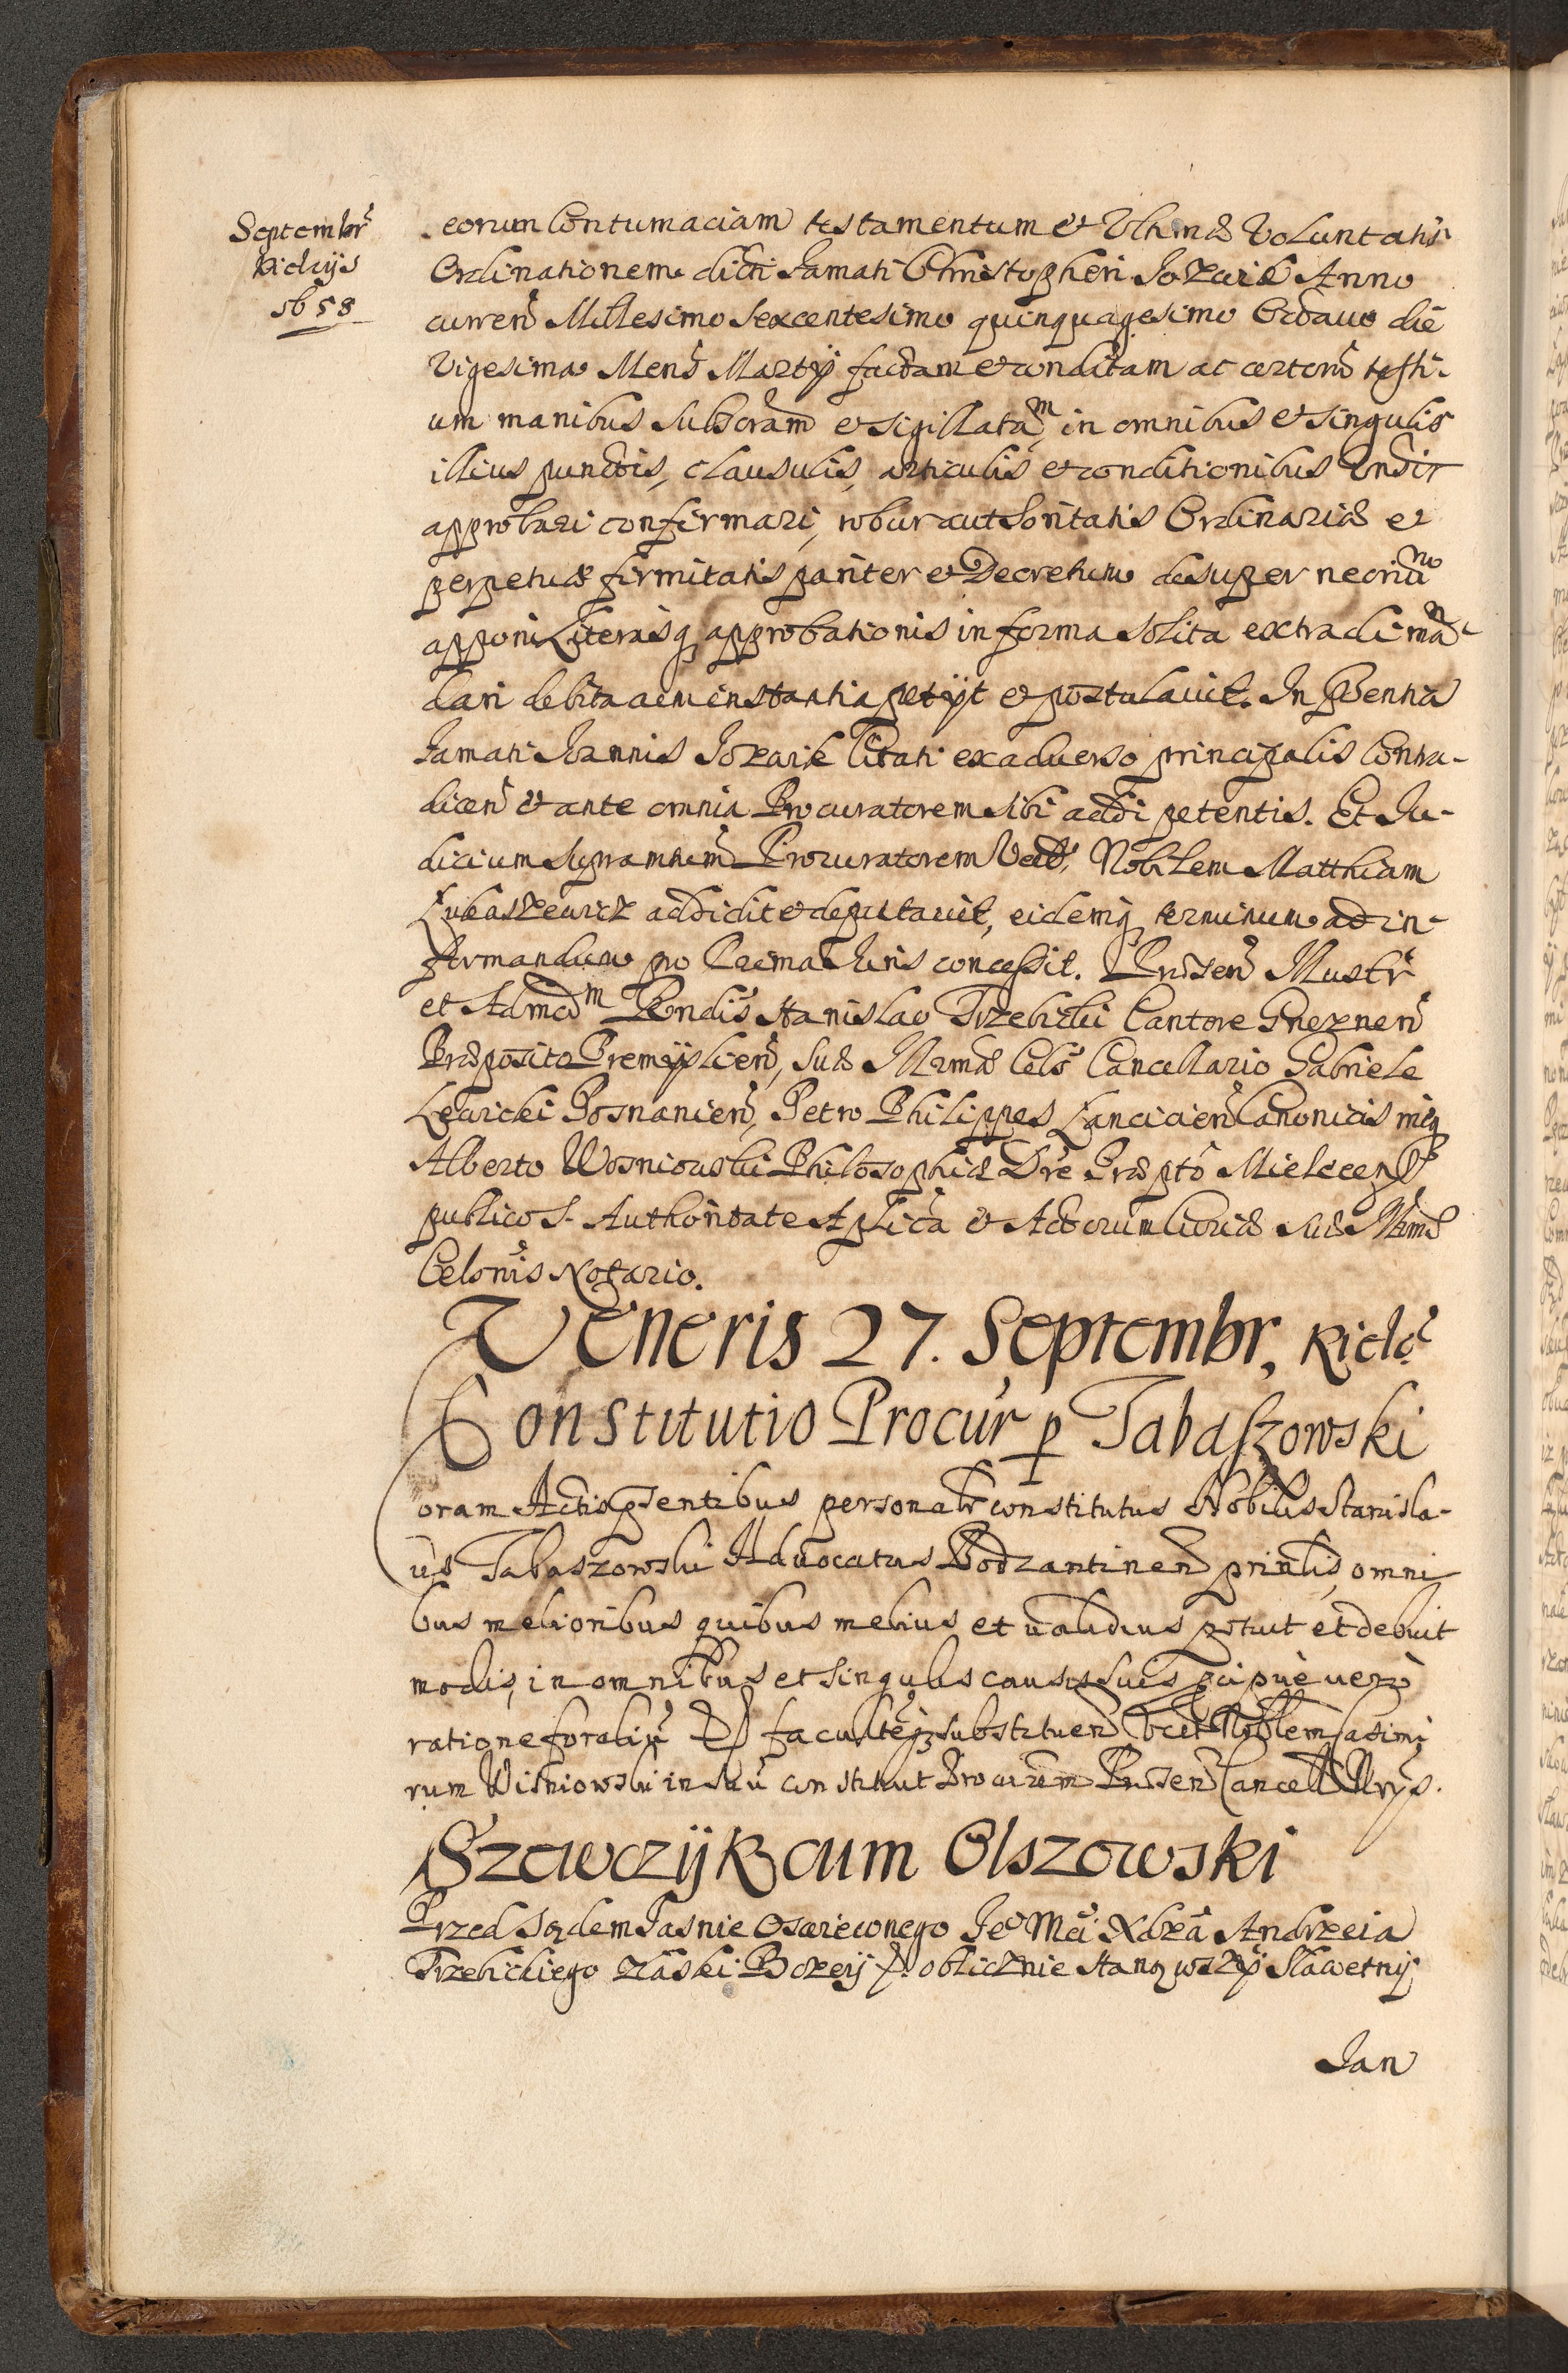 Septembr
Kielcijs
1658
eorum Contumaciam testamentum et Vltimæ Voluntatis
Ordinationem dicti Famati Christopheri Jozwik Anno
curren Millesimo Sexcentesimo quinquagesimo Octauo die
Vigesima Mens Martij factam et conditam ac certorū testi-
um manibus Subscram et sigillatam, in omnibus et singulis
illius punctis, clausulis, articulis et conditionibus
approbari confirmari, robur authoritatis Ordinariæ et
perpetuæ firmitatis pariter et Decretum desuper necrium
apponi Literasq approbationis in forma solita extradi man-
dari debita cum instantia petijt et postulauit. In Pñtia
Famati Joannis Jozwik Citati ex aduerso principalis Contra-
dicen et ante omnia Procuratorem sibi addi petentis. Et Ju-
dicium Procuratorem Nobilem Matthiam
Łukaszewicz addidit et deputauit, eidemq terminum ad in-
formandum pro Crima Juris concessit. Pñtsen Illustr
et Admdm Rendis Stanislao Trzebicki Cantore Gneznen
Præposito Premislien, Suæ Illrmæ Cels Cancellario Gabriele
Lewicki Posnanien, Petro Philippes Lancicien Canonicis
Alberto Wosniowski Philosophiæ Dre Præpto Mielecen
publico S. Authoritate Aplica et Actorum Curiæ Suæ Illrmæ
Celsnis Notario.
Veneris 27. Septembr, Kielc
Constitutio Procur p Tabaszowski
oram Actis psentibus personalr constitutus Nobilis Stanisla-
us Tabaszowski Aduocatus Bodzantinen prinlis, omni
bus melioribus quibus melius et validius potuit et debuit
modis, in omnibus et singulis causis suis pcipuè verò
ratione foraliu faculteq substituen Noblem Casimi
rum Wisniowski in constituit Procurem Pñtsen Cancell
Szewczyk cum Olszowski
Przed Sądem Jasnie Oswieconego Je Mci Xdza Andrzeia
Trzebickiego z łaski Bozey oblicznie stanąwszy Sławetny
Jan